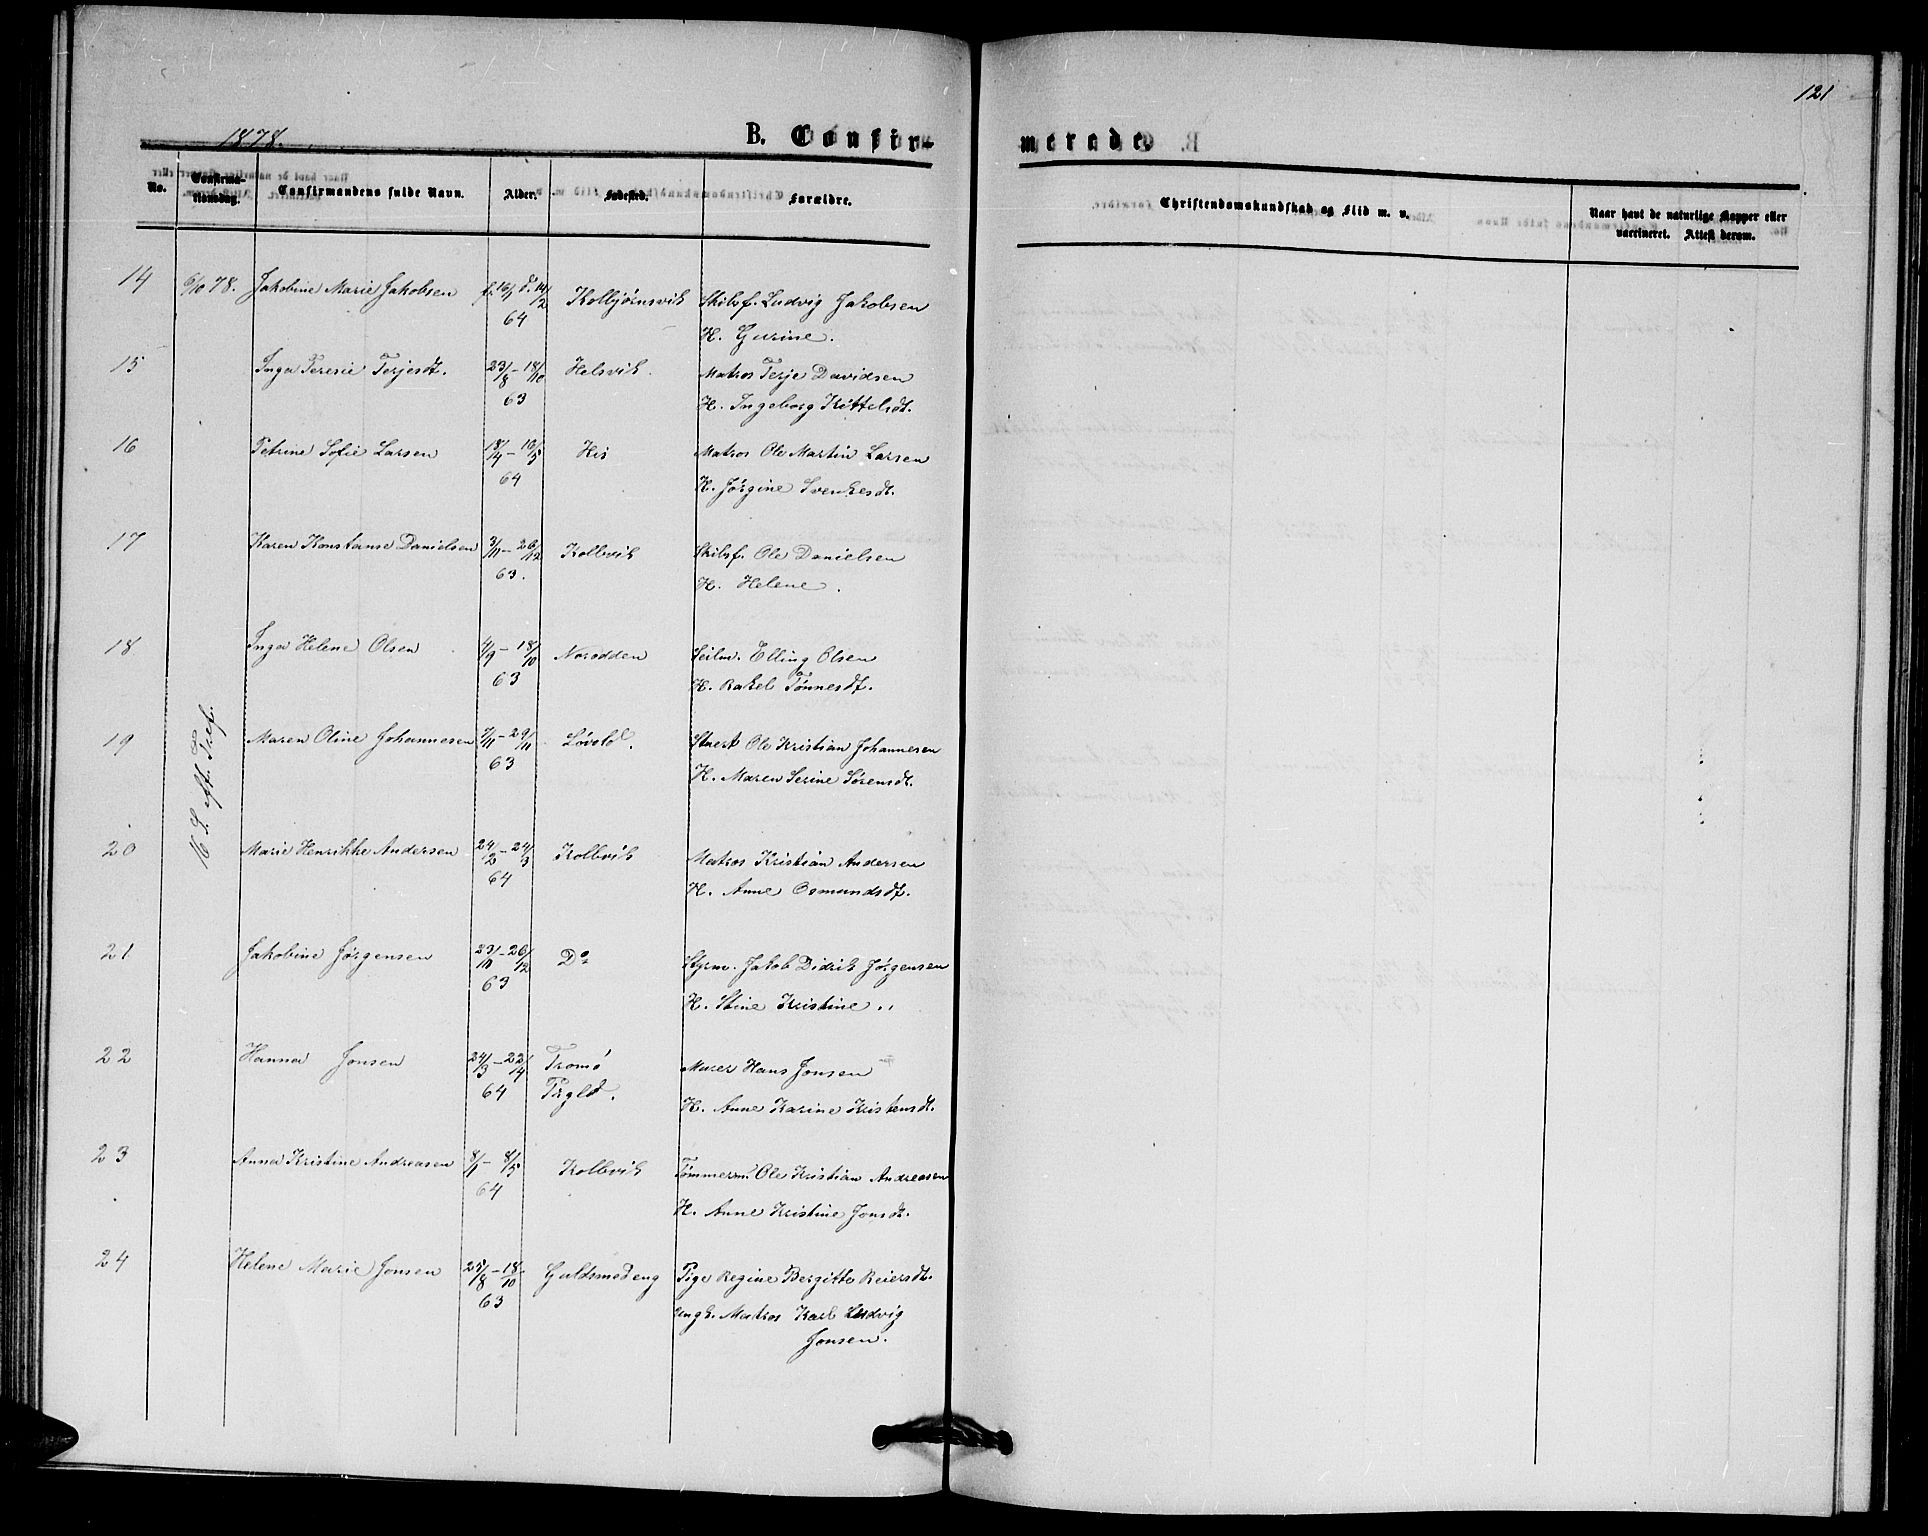 121
1878.
B. Confirmerede.
No.
Confirmationsdag.
Confirmandens fulde Navn.
Alder.
Fødested.
Forældre.
Christendomskundskab og Flid m. v.
Naar havt de naturlige Kopper eller
vaccineret. Attest derom.
14 6/10 78. Jakobine Marie Jakobsen f. 16/1 d. 14/2 Kolbjørnsvik Skibsf. Ludvig Jakobsen
64 H. Gurine.
15 Inga Teresie Terjesdt. 23/8 - 18/10 Helsvik. Matros Terje Davidsen
63 H. Ingeborg Kittelsdt.
16 Petrine Sofie Larsen 18/4 - 10/5 His Matros Ole Martin Larsen
64 H. Jørgine Svenkesdt.
17 Karen Konstanse Danielsen 3/11 - 26/12 Kolbvik Skibsf. Ole Danielsen
63. H. Helene.
18 Inga Helene Olsen 4/9 - 18/10 Norodden Seilm. Elling Olsen
63 H. Rakel Tønnesdt.
16 S. eft. Tref.
19 Maren Oline Johannesen 7/11 - 29/11 Løvold. Stuert Ole Kristian Johannesen
63 H. Maren Serine Sørensdt.
20 Marie Henrikke Andersen 24/2 - 24/3 Kolbvik Matros Kristian Andersen
64 H. Anne Osmundsdt.
21 Jakobine Jørgensen 23/11 - 26/12 Do Styrm. Jakob Didrik Jørgensen
63 H. Stine Kristine „
22 Hanna Jonsen 24/3 - 22/4 Tromø Murer Hans Jonsen
64 Prgld. H. Anne Karine Kristensdt.
23 Anna Kristine Andreasen 8/1 - 8/5 Kolbvik Tømmerm. Ole Kristian Andreasen
64 H. Anne Kristine Jonsdt.
24 Helene Marie Jonsen 25/8 - 18/10 Guldsmedeng Pige Regine Bergitte Reiersdt.
63 Ungk. Matros Karl Ludvig
Jonsen.